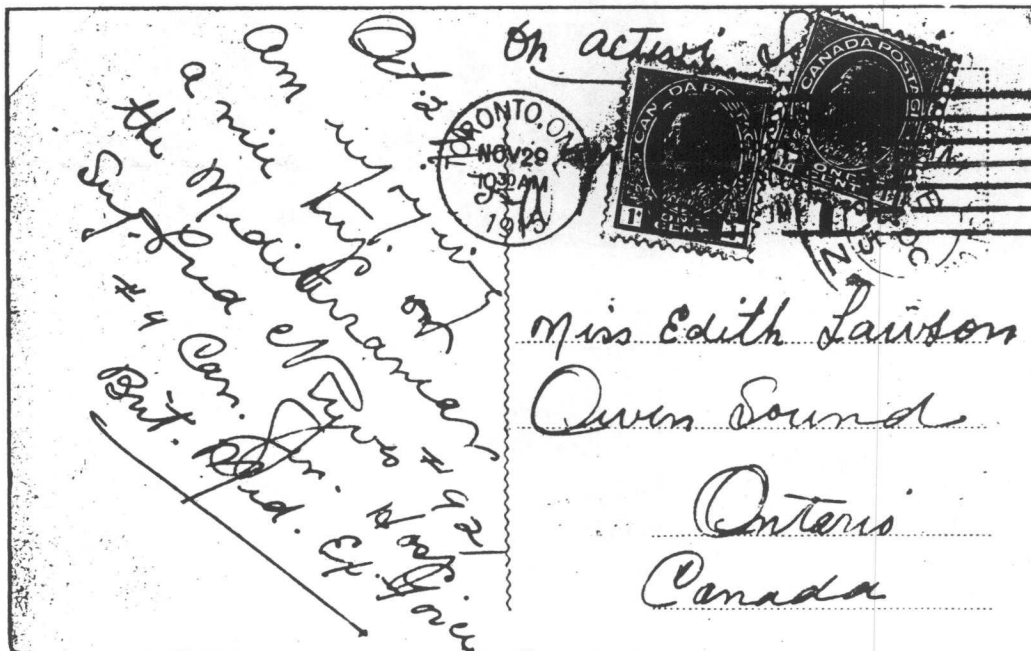 Oct. 2
Am enjoying
a nice trip on
the Mediterranean
Sgt. Fred # 92
# 4 Can. Gen. Hosp
Brit. Med. Ex. Force
On Active
TORONTO, ON
NOV 28
10 30 AM
1915
CANADA POSTAGE
1 ONE CENT 1
CANADA POSTAGE
ONE CENT
Miss Edith Lawson
Owen Sound
Ontario
Canada